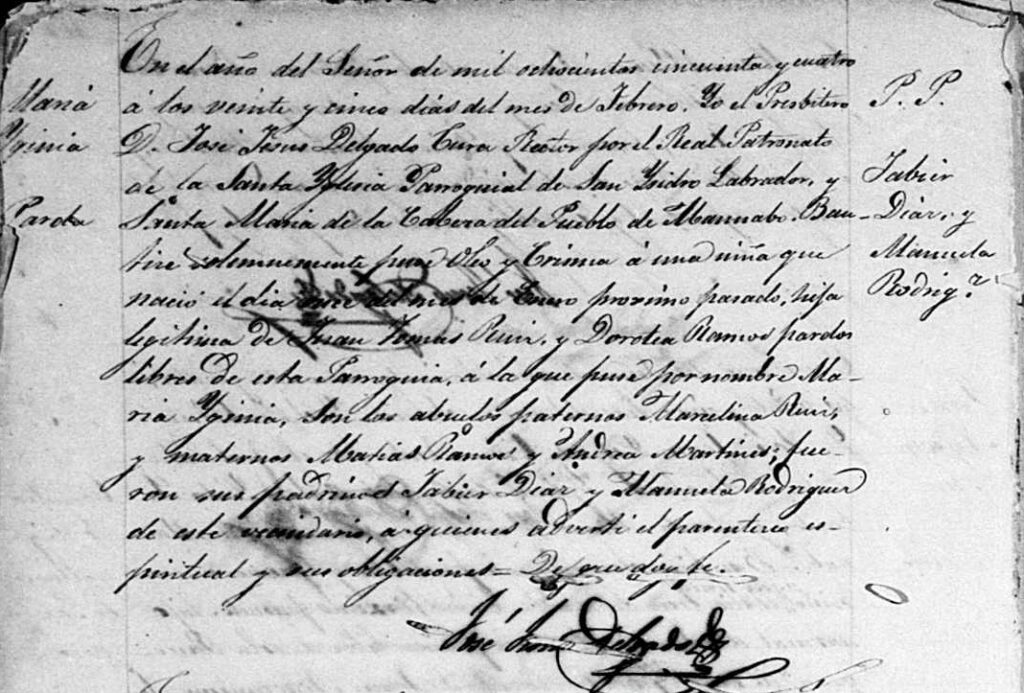 María
Yginia
Parda
En el año del Señor de mil ochocientos cincuenta y cuatro
á los veinte y cinco dias del mes de Febrero. Yo el Presbitero
D. José Jesus Delgado Cura Rector por el Real Patronato
de la Santa Yglesia Parroquial de San Ysidro Labrador, y
Santa Maria de la Cabeza del Pueblo de Maunabo. Bau-
tize solemnemente puse Oleo y Crisma á una niña que
nació el dia once del mes de Enero proximo pasado, hija
legitima de Juan Tomas Ruiz, y Dorotea Ramos pardos
libres de esta Parroquia, á la que puse por nombre Ma-
ria Yginia, son los abuelos paternos Marcelina Ruiz,
y maternos Matias Ramos y Andrea Martines; fue-
ron sus padrinos Jabier Diaz y Manuela Rodriguez
de este vecindario, a quienes adverti el parentesco es-
piritual y sus obligaciones = De que doy fe.
José Jesus Delgado
P. P.
Jabier
Diaz, y
Manuela
Rodrig.z